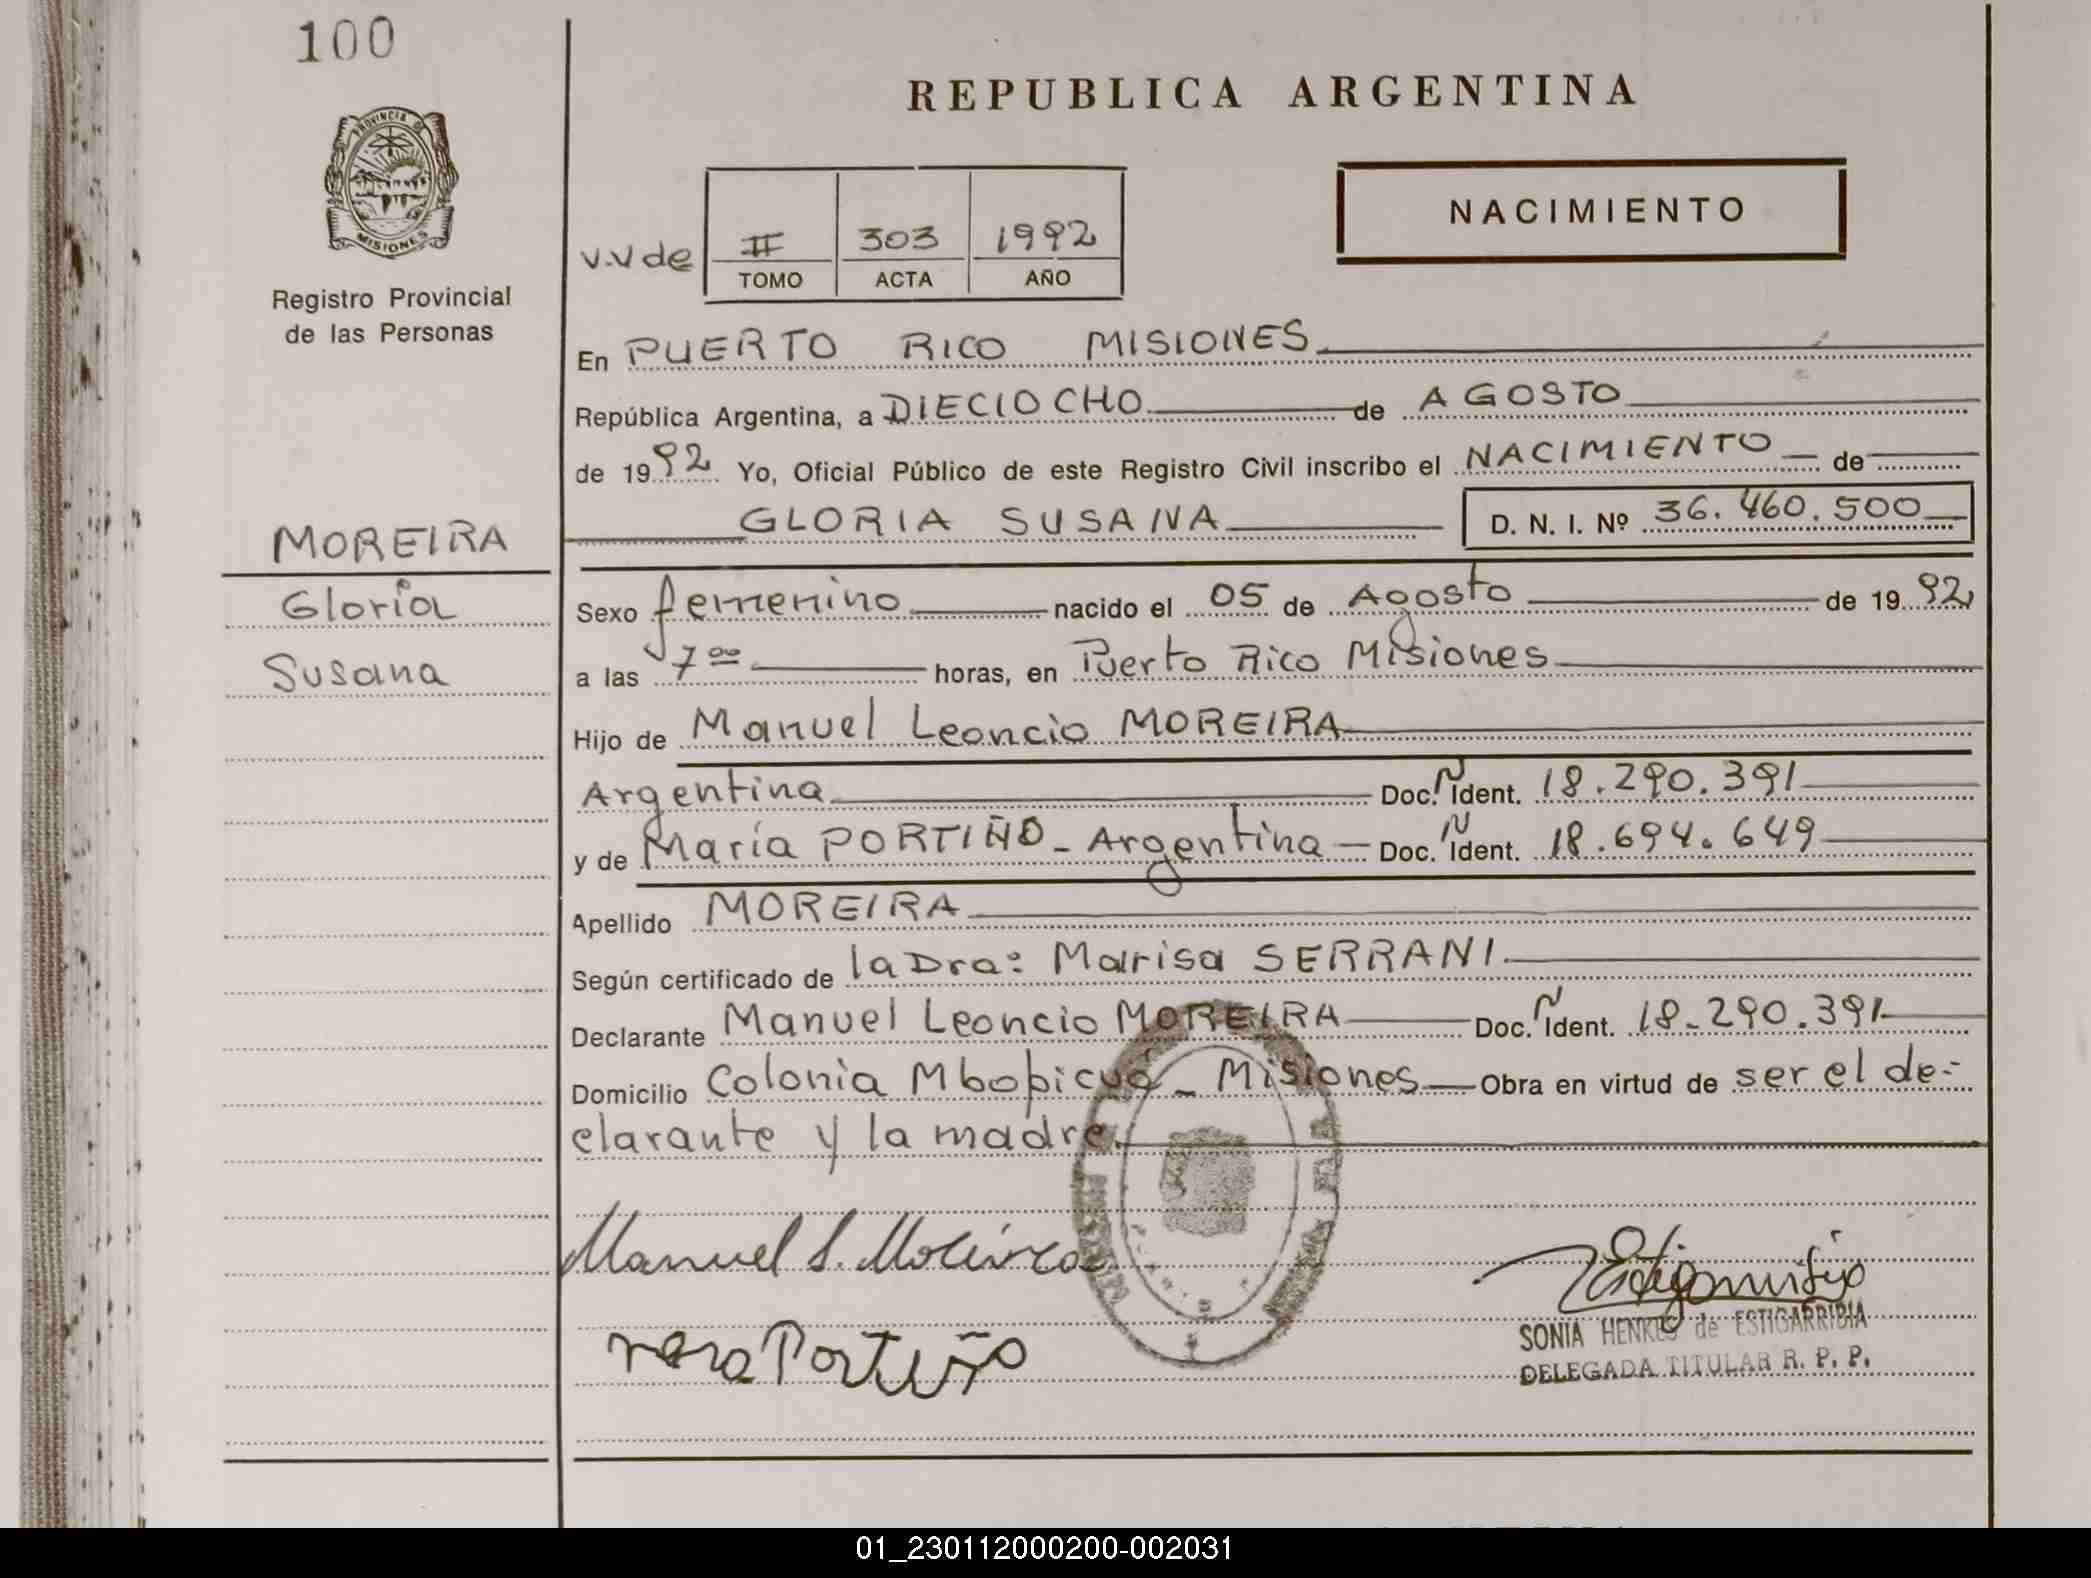 100
REPUBLICA ARGENTINA
PROVINCIA DE
MISIONES
Registro Provincial
de las Personas
NACIMIENTO
v.v de II 303 1992
TOMO ACTA AÑO
En PUERTO RICO MISIONES
República Argentina, a DIECIOCHO de AGOSTO
de 1992 Yo, Oficial Público de este Registro Civil inscribo el NACIMIENTO de
GLORIA SUSANA D. N. I. Nº 36.460.500
MOREIRA
Gloria
Susana
Sexo femenino nacido el 05 de Agosto de 1992
a las 7 00 horas, en Puerto Rico Misiones
Hijo de Manuel Leoncio MOREIRA
Argentina Doc. N Ident. 18.290.391
y de María PORTIÑO - Argentina - Doc. N Ident. 18.694.649
Apellido MOREIRA
Según certificado de la Dra: Marisa SERRANI
Declarante Manuel Leoncio MOREIRA Doc. N Ident. 18.290.391
Domicilio Colonia Mbopicuá - Misiones Obra en virtud de ser el de-
clarante y la madre.
Manuel L. Moreira
Portiño
SONIA HENKES de ESTIGARRIBIA
DELEGADA TITULAR R. P. P.
01_230112000200-002031